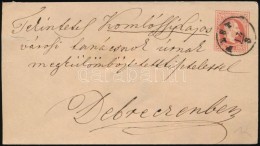 Tekintetes Komlóssy Lajos
városi tanácsnok úrnak
megkülömböztetett tisztelettel
Debreczenben